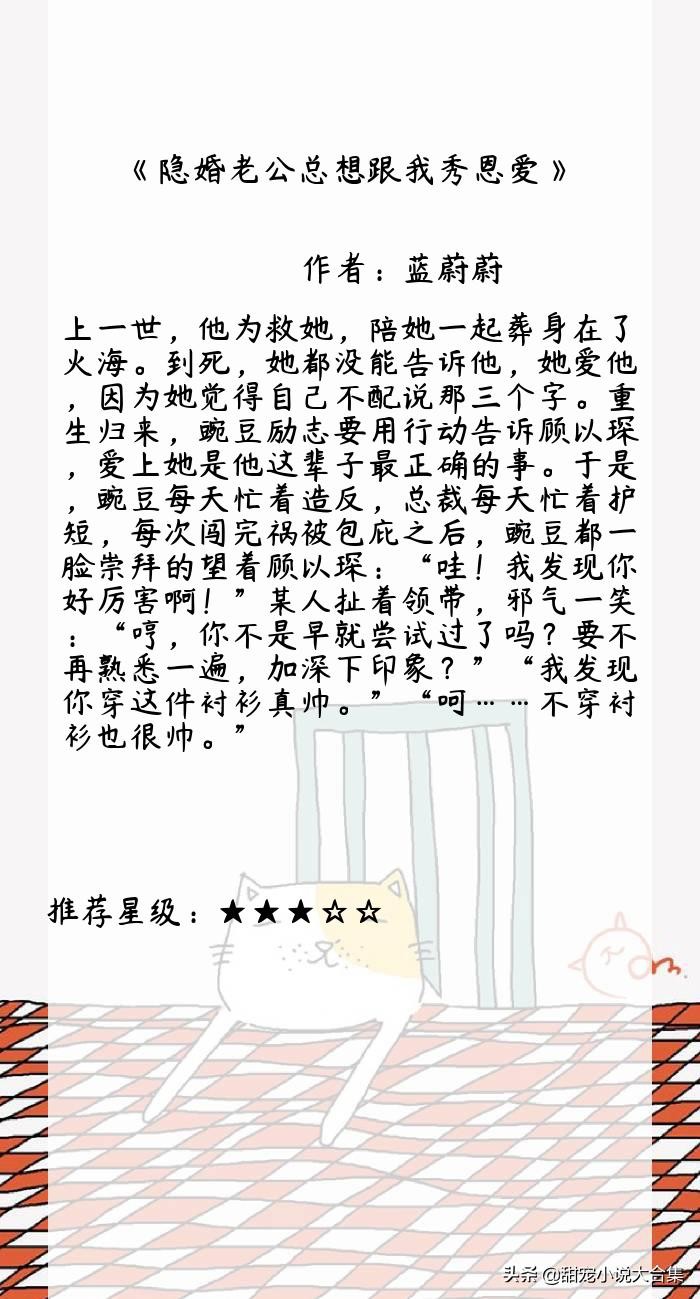 《隐婚老公总想跟我秀恩爱》
作者：蓝蔚蔚
上一世，他为救她，陪她一起葬身在了
火海。到死，她都没能告诉他，她爱他
，因为她觉得自己不配说那三个字。重
生归来，豌豆励志要用行动告诉顾以琛
，爱上她是他这辈子最正确的事。于是
，豌豆每天忙着造反，总裁每天忙着护
短，每次闯完祸被包庇之后，豌豆都一
脸崇拜的望着顾以琛：“哇！我发现你
好厉害啊！”某人扯着领带，邪气一笑
：“哼，你不是早就尝试过了吗？要不
再熟悉一遍，加深下印象？”“我发现
你穿这件衬衫真帅。”“呵……不穿衬
衫也很帅。”
推荐星级：★★★☆☆
头条 @甜宠小说大合集